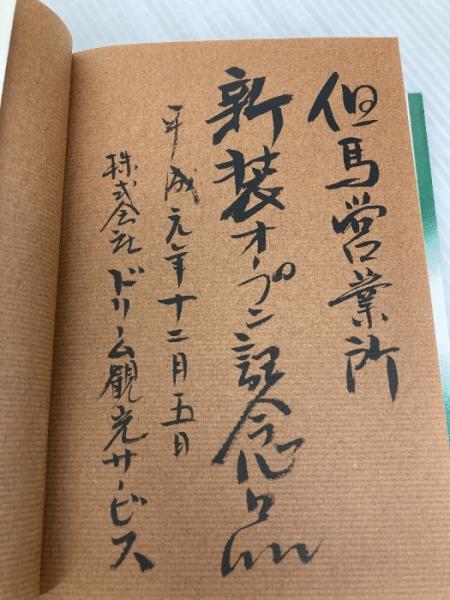 但馬営業所
新装オープン記念品
平成元年十二月五日
株式会社ドリーム観光サービス